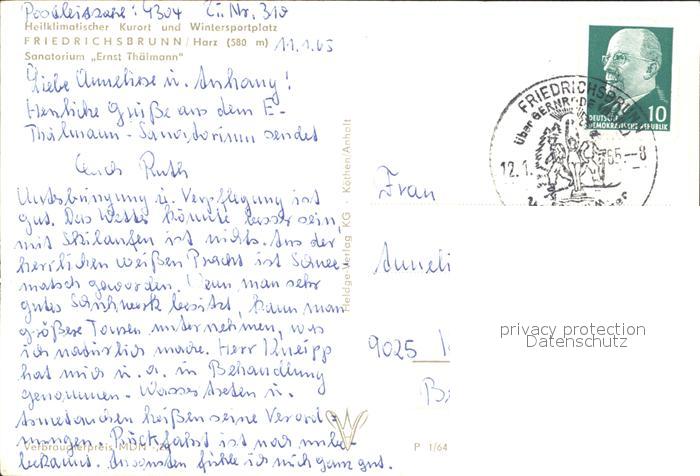 Postleitzahl: 4304 Zi. Nr. 318
Heilklimatischer Kurort und Wintersportplatz
FRIEDRICHSBRUNN/Harz (580 m) 11.1.65
Sanatorium „Ernst Thälmann"
Liebe Anneliese u. Anhang!
Herzliche Grüße aus dem E-
Thälmann-Sanatorium sendet
Euch Ruth
Unterbringung u. Verpflegung ist
gut. Das Wetter könnte besser sein,
mit Skilaufen ist nichts. Aus der
herrlichen weißen Pracht ist Schnee-
matsch geworden. Wenn man sehr
gutes Schuhwerk besitzt, kann man
größere Touren unternehmen, was
ich natürlich mache. Herr Kneipp
hat mich u. a. in Behandlung
genommen. Wassertreten u.
Armetauchen heißen seine Verord-
nungen. Rückfahrt ist noch unbe-
kannt. Ansonsten fühle ich mich ganz gut.
Verbraucherpreis MDN
Heldge-Verlag KG · Köthen/Anhalt
P 1/64
FRIEDRICHSBRUNN
über BERNRODE
12.1.65.-8
10
DEUTSCHE
DEMOKRATISCHE REPUBLIK
Frau
Anneli
9025
privacy protection
Datenschutz